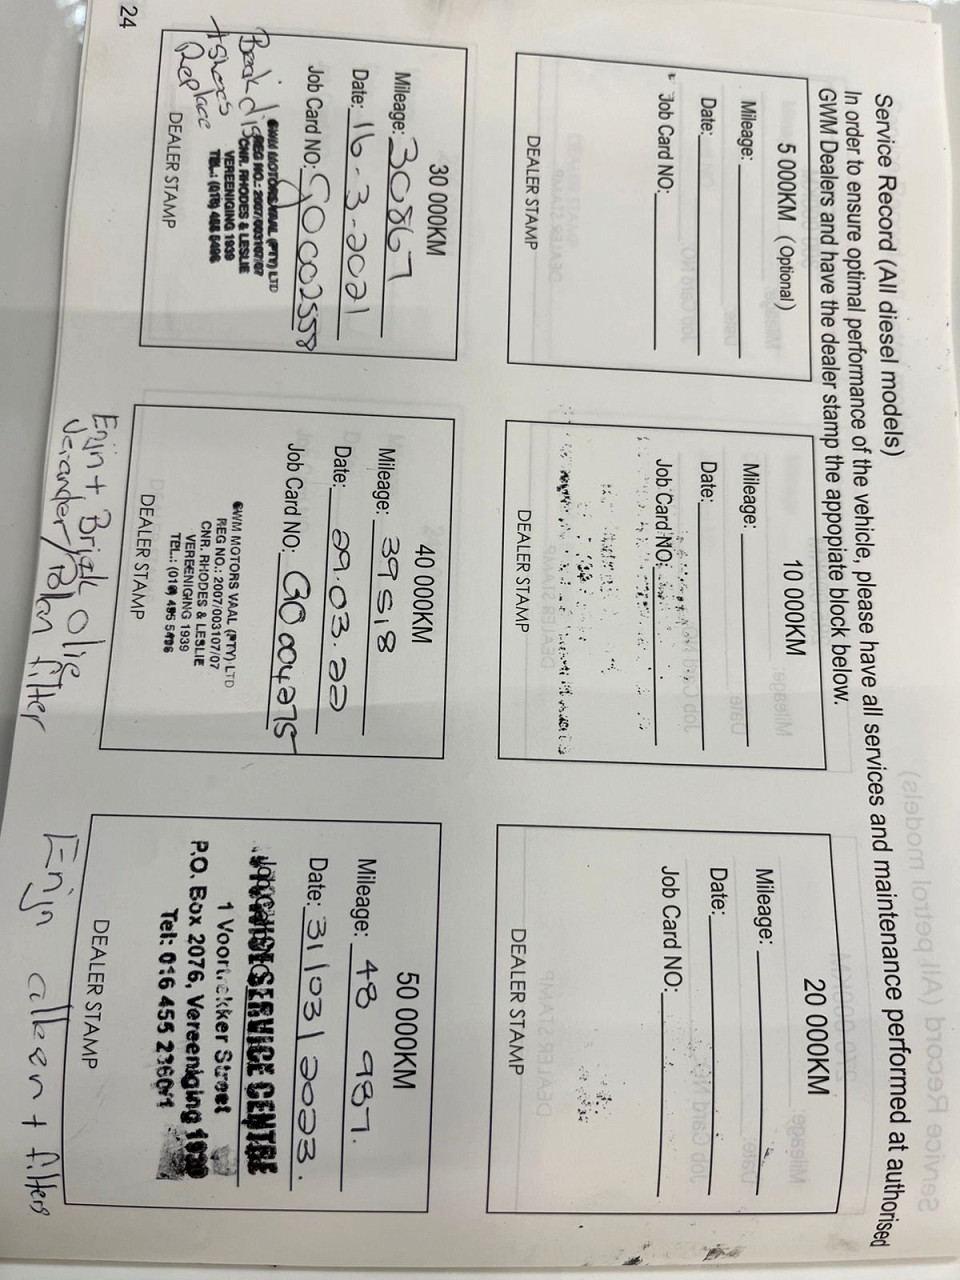 Service Record (All diesel models)
In order to ensure optimal performance of the vehicle, please have all services and maintenance performed at authorised
GWM Dealers and have the dealer stamp the appopiate block below.
5 000KM (Optional)
Mileage:
Date:
Job Card NO:
DEALER STAMP
10 000KM
Mileage:
Date:
Job Card NO:
DEALER STAMP
20 000KM
Mileage:
Date:
Job Card NO:
DEALER STAMP
30 000KM
Mileage: 30867
Date: 16-3-2021
Job Card NO: GO0002558
GWM MOTORS VAAL (PTY) LTD
REG NO.: 2007/003107/07
CNR. RHODES & LESLIE
VEREENIGING 1939
TEL.: (016) 455 5496
Replace
DEALER STAMP
40 000KM
Mileage: 39518
Date: 29.03.22
Job Card NO: GO004275
GWM MOTORS VAAL (PTY) LTD
REG NO.: 2007/003107/07
CNR. RHODES & LESLIE
VEREENIGING 1939
TEL.: (016) 455 5496
DEALER STAMP
Enjn + Briek olie
verander / Polan filter
50 000KM
Mileage: 48 987.
Date: 31/03/2023.
SERVICE CENTRE
1 Voortrekker Street
P.O. Box 2076, Vereeniging 1930
Tel: 016 455 2360/1
DEALER STAMP
Enjn alleen + filters
24